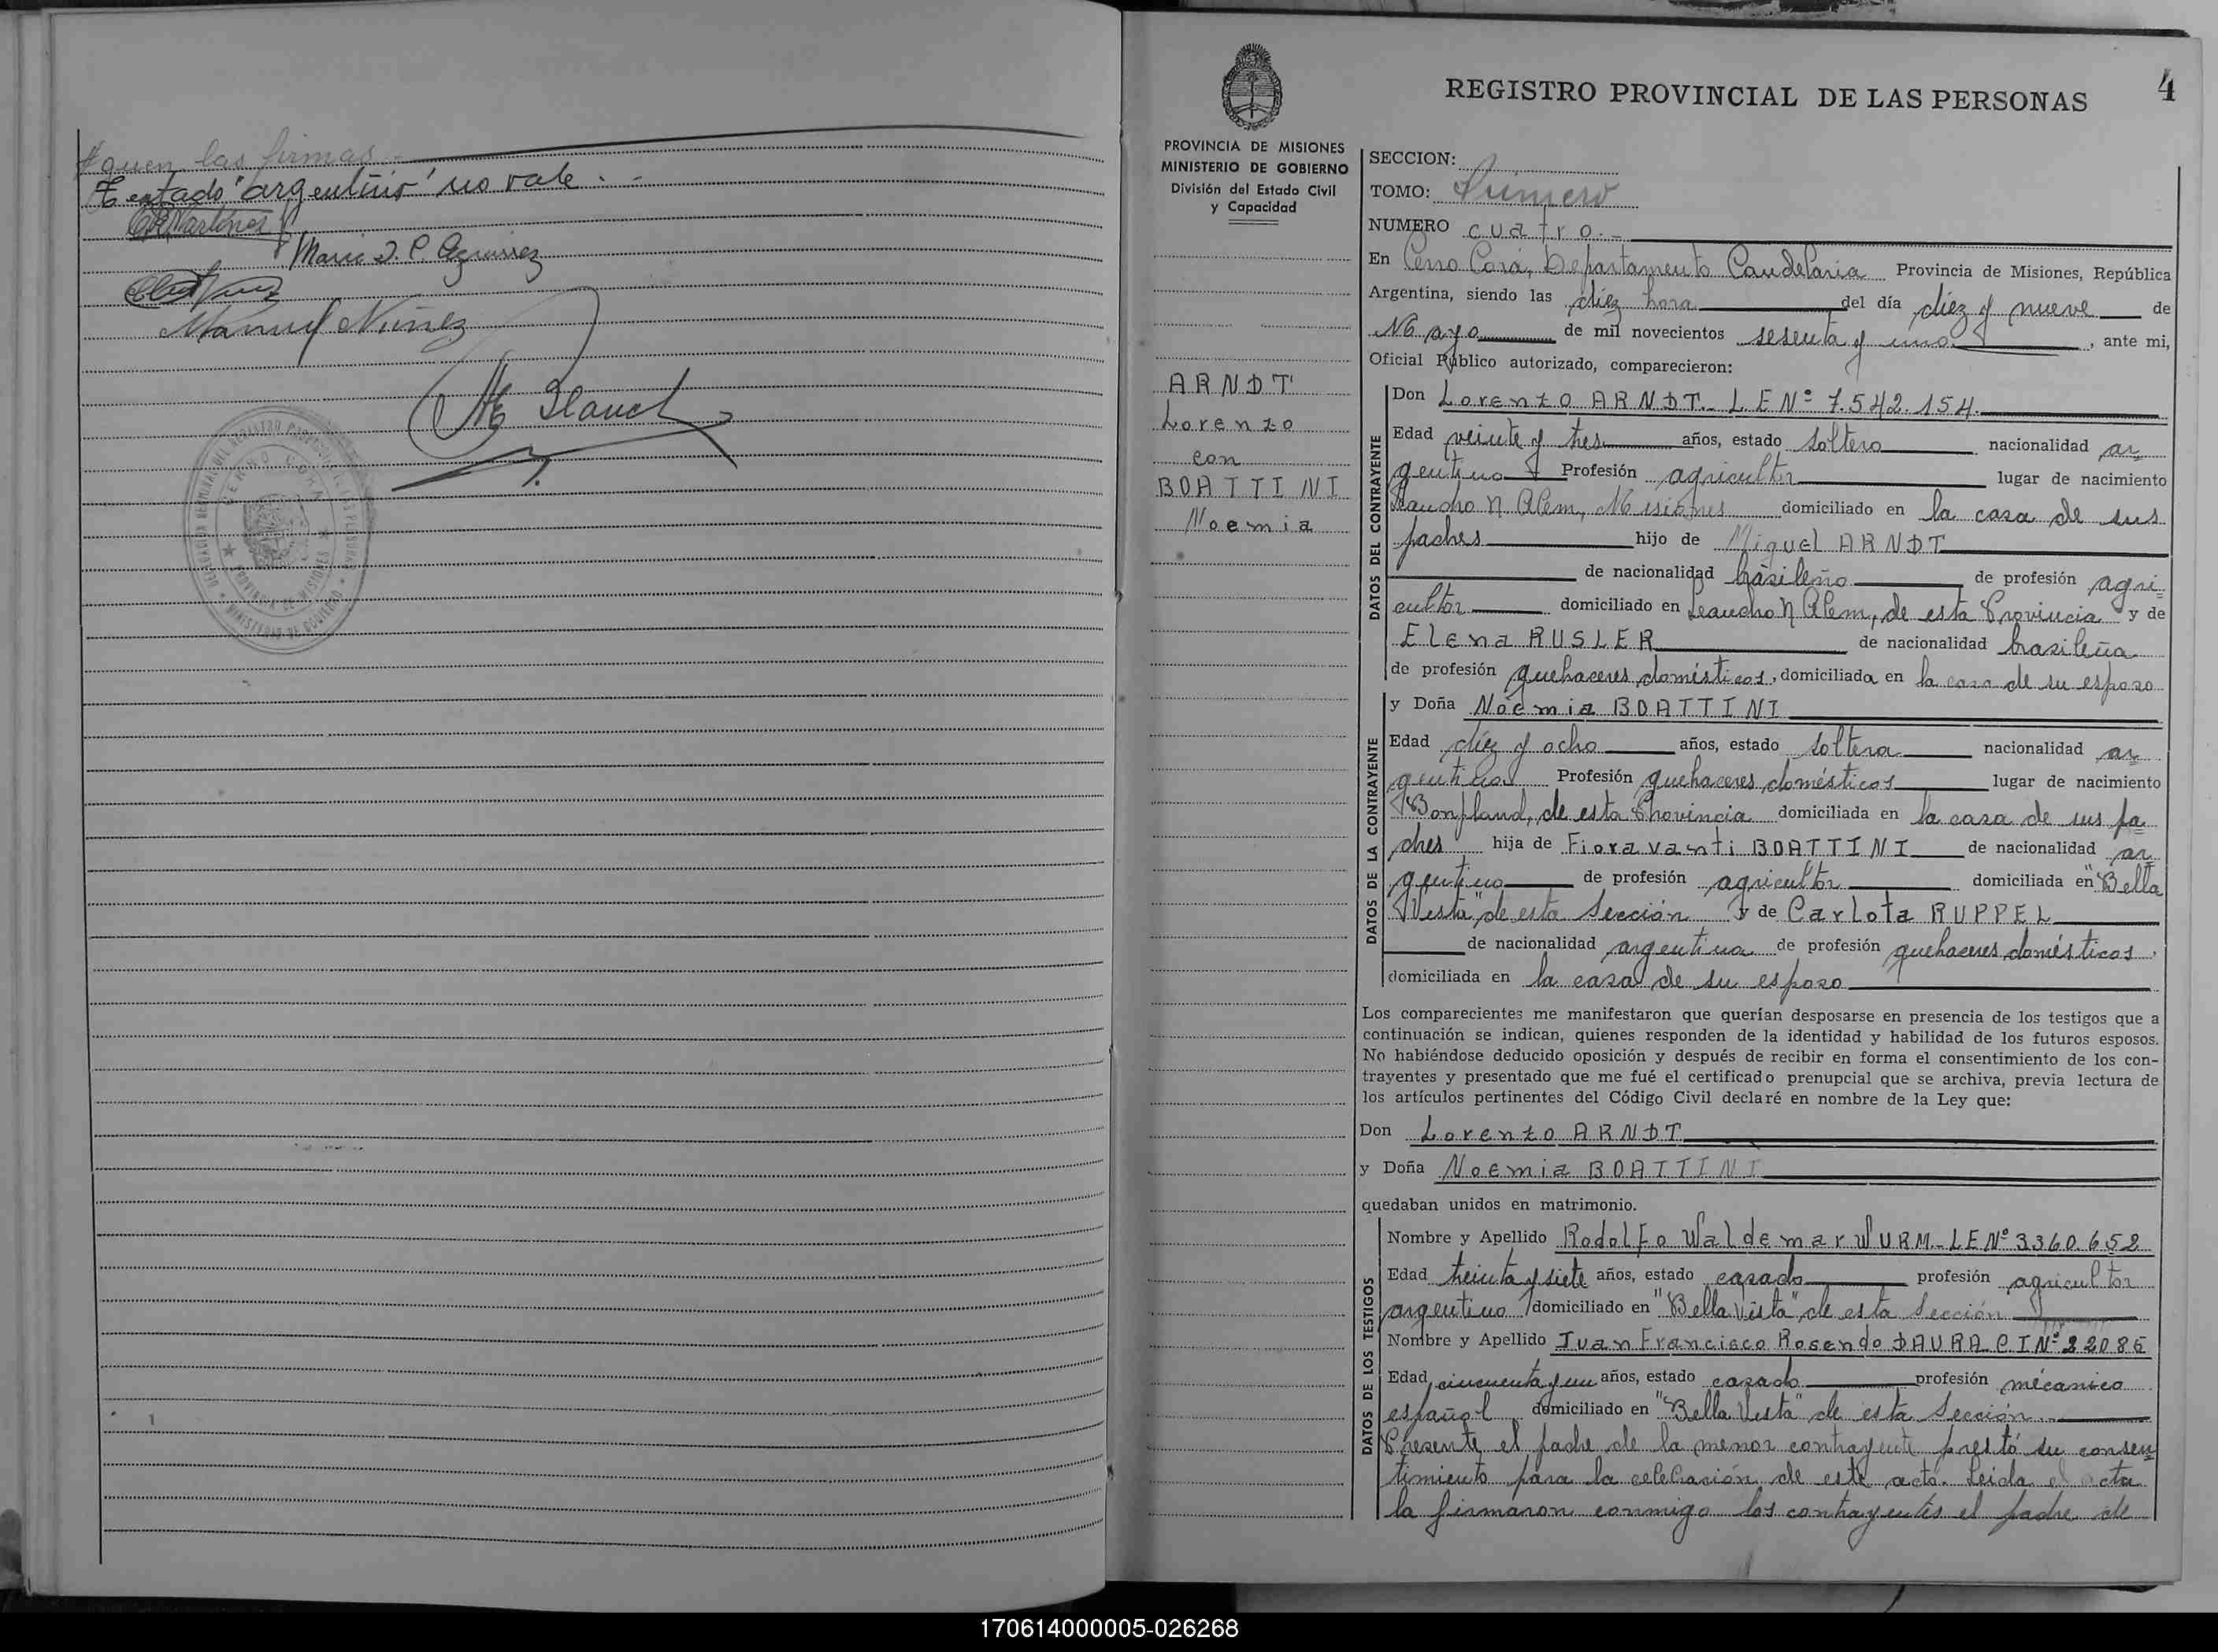 quen las firmas.-
Testado "argentino" no vale.-
C.R. Martinez
Maria D. P. Aguirrez
Manuel Nuñez
CERRO CORA
PROVINCIA DE MISIONES
MINISTERIO DE GOBIERNO
4
REGISTRO PROVINCIAL DE LAS PERSONAS
PROVINCIA DE MISIONES
MINISTERIO DE GOBIERNO
División del Estado Civil
y Capacidad
ARNDT
Lorenzo
con
BOATTINI
Noemia
SECCION:
TOMO: Primero
NUMERO cuatro.-
En Cerro Corá, Departamento Candelaria Provincia de Misiones, República
Argentina, siendo las diez hora del día diez y nueve de
Mayo de mil novecientos sesenta y uno, ante mi,
Oficial Público autorizado, comparecieron:
DATOS DEL CONTRAYENTE
Don Lorenzo ARNDT.- L.E Nº 7.542.154.
Edad veinte y tres años, estado soltero nacionalidad ar
gentino Profesión agricultor lugar de nacimiento
Leandro N. Alem, Misiones domiciliado en la casa de sus
padres hijo de Miguel ARNDT
de nacionalidad brasileño de profesión agri
cultor domiciliado en Leandro N Alem, de esta Provincia y de
Elena RUSLER de nacionalidad brasileña
de profesión quehaceres domésticos, domiciliada en la casa de su esposo
DATOS DE LA CONTRAYENTE
y Doña Noemia BOATTINI
Edad diez y ocho años, estado soltera nacionalidad ar
gentina Profesión quehaceres domésticos lugar de nacimiento
Bonpland, de esta Provincia domiciliada en la casa de sus pa
dres hija de Fioravanti BOATTINI de nacionalidad ar
gentino de profesión agricultor domiciliada en "Bella
Vista" de esta Sección y de Carlota RUPPEL
de nacionalidad argentina de profesión quehaceres domésticos,
domiciliada en la casa de su esposo
Los comparecientes me manifestaron que querían desposarse en presencia de los testigos que a
continuación se indican, quienes responden de la identidad y habilidad de los futuros esposos.
No habiéndose deducido oposición y después de recibir en forma el consentimiento de los con-
trayentes y presentado que me fué el certificado prenupcial que se archiva, previa lectura de
los artículos pertinentes del Código Civil declaré en nombre de la Ley que:
Don Lorenzo ARNDT
y Doña Noemia BOATTINI
quedaban unidos en matrimonio.
DATOS DE LOS TESTIGOS
Nombre y Apellido Rodolfo Waldemar WURM.- LE Nº 3.360.652
Edad treinta y siete años, estado casado profesión agricultor
argentino domiciliado en "Bella Vista" de esta Sección
Nombre y Apellido Juan Francisco Rosendo DAURA C.I Nº 22086
Edad cincuenta y un años, estado casado profesión mécanico
español domiciliado en "Bella Vista" de esta Sección.
Presente el padre de la menor contrayente prestó su consen
timiento para la celebración de este acto. Leida el acta
la firmaron conmigo los contrayentes el padre de
170614000005-026268